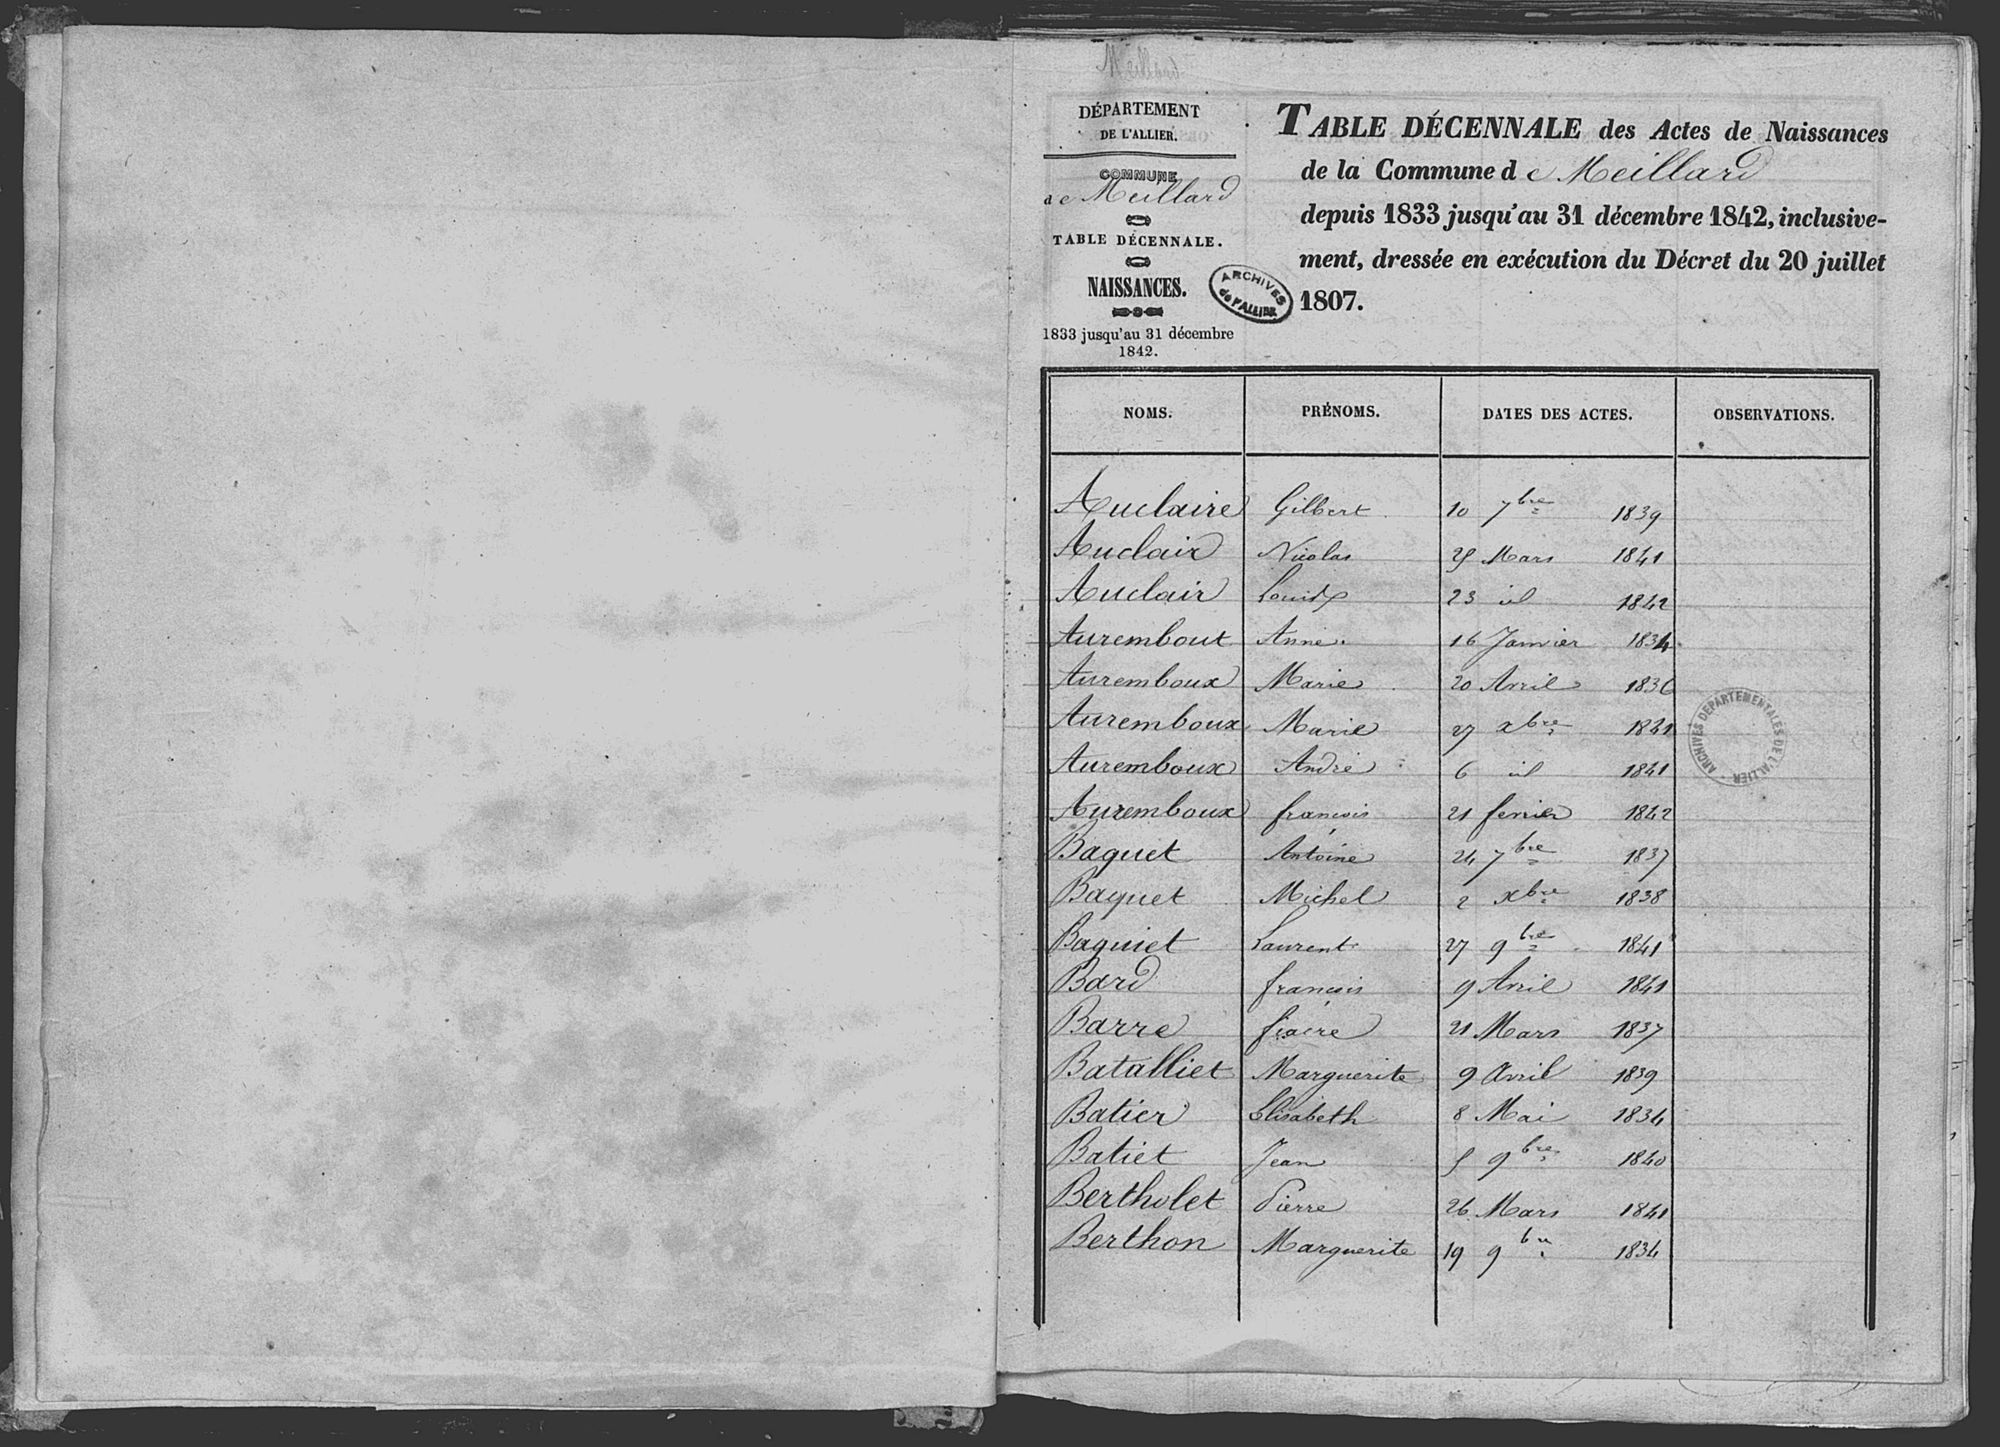 DÉPARTEMENT
DE L'ALLIER.
COMMUNE
de Meillard
TABLE DÉCENNALE.
NAISSANCES.
1833 jusqu'au 31 décembre
1842.
TABLE DÉCENNALE des Actes de Naissances
de la Commune de Meillard
depuis 1833 jusqu'au 31 décembre 1842, inclusive-
ment, dressée en exécution du Décret du 20 juillet
1807.
ARCHIVES
de l'ALLIER
NOMS. PRÉNOMS. DATES DES ACTES. OBSERVATIONS.
Auclaire Gilbert 10 7bre 1839
Auclair Nicolas 25 Mars 1841
Auclair Louis 23 id 1842
Aurembout Anne 16 Janvier 1834
Auremboux Marie 20 Avril 1836
Auremboux Marie 27 xbre 1841
Auremboux André 6 id 1841
Auremboux françois 21 fevrier 1842
Baguet Antoine 24 7bre 1837
Baquet Michel 2 xbre 1838
Baguiet Laurent 27 9bre 1841
Bard françois 9 Avril 1841
Barre fiacre 21 Mars 1837
Batalliet Marguerite 9 Avril 1839
Batier Elisabeth 8 Mai 1834
Batiet Jean 5 9bre 1840
Bertholet Pierre 26 Mars 1841
Berthon Marguerite 19 9bre 1834
ARCHIVES DÉPARTEMENTALES DE L'ALLIER